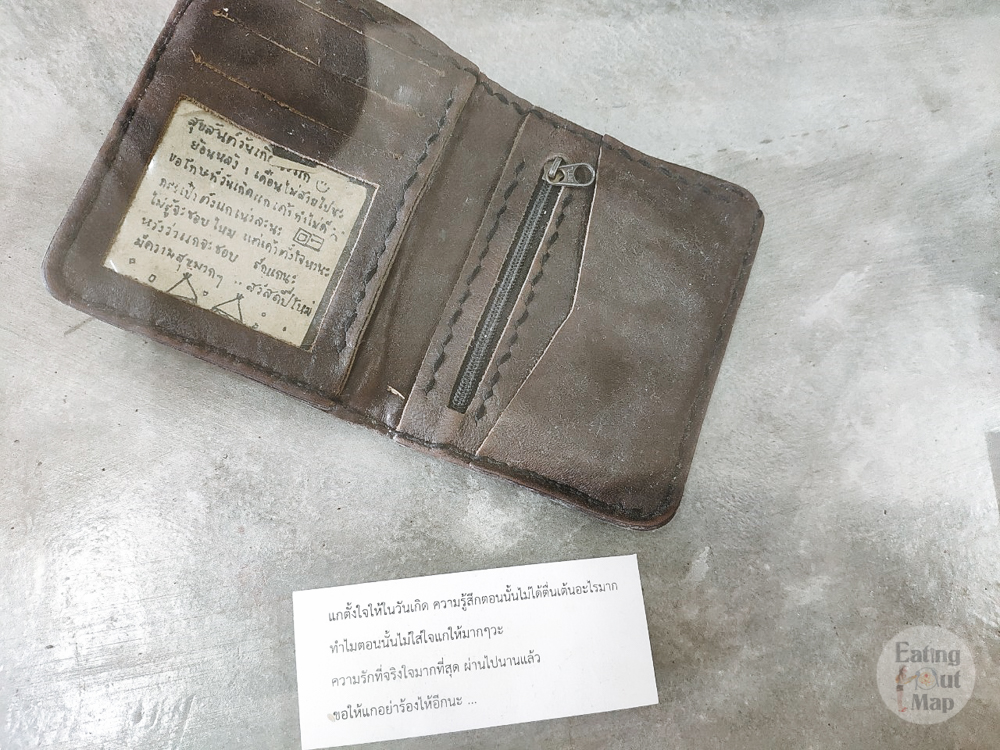 สุขสันต์วันเกิด
ย้อนหลัง 1 เดือน ไม่สายไปนะ
ขอโทษที่วันเกิดแก เค้าทำไม่ดี
กระเป๋าตังแกเน่าละนะ
ไม่รู้จะชอบไหม แต่เค้าตั้งใจนานะ
หวังว่าแกจะชอบ รักแกนะ
มีความสุขมากๆ .. สวัสดีปีใหม่
แกตั้งใจให้ในวันเกิด ความรู้สึกตอนนั้นไม่ได้ตื่นเต้นอะไรมาก
ทำไมตอนนั้นไม่ใส่ใจแกให้มากๆวะ
ความรักที่จริงใจมากที่สุด ผ่านไปนานแล้ว
ขอให้แกอย่าร้องไห้อีกนะ ...
Eating
Out
Map